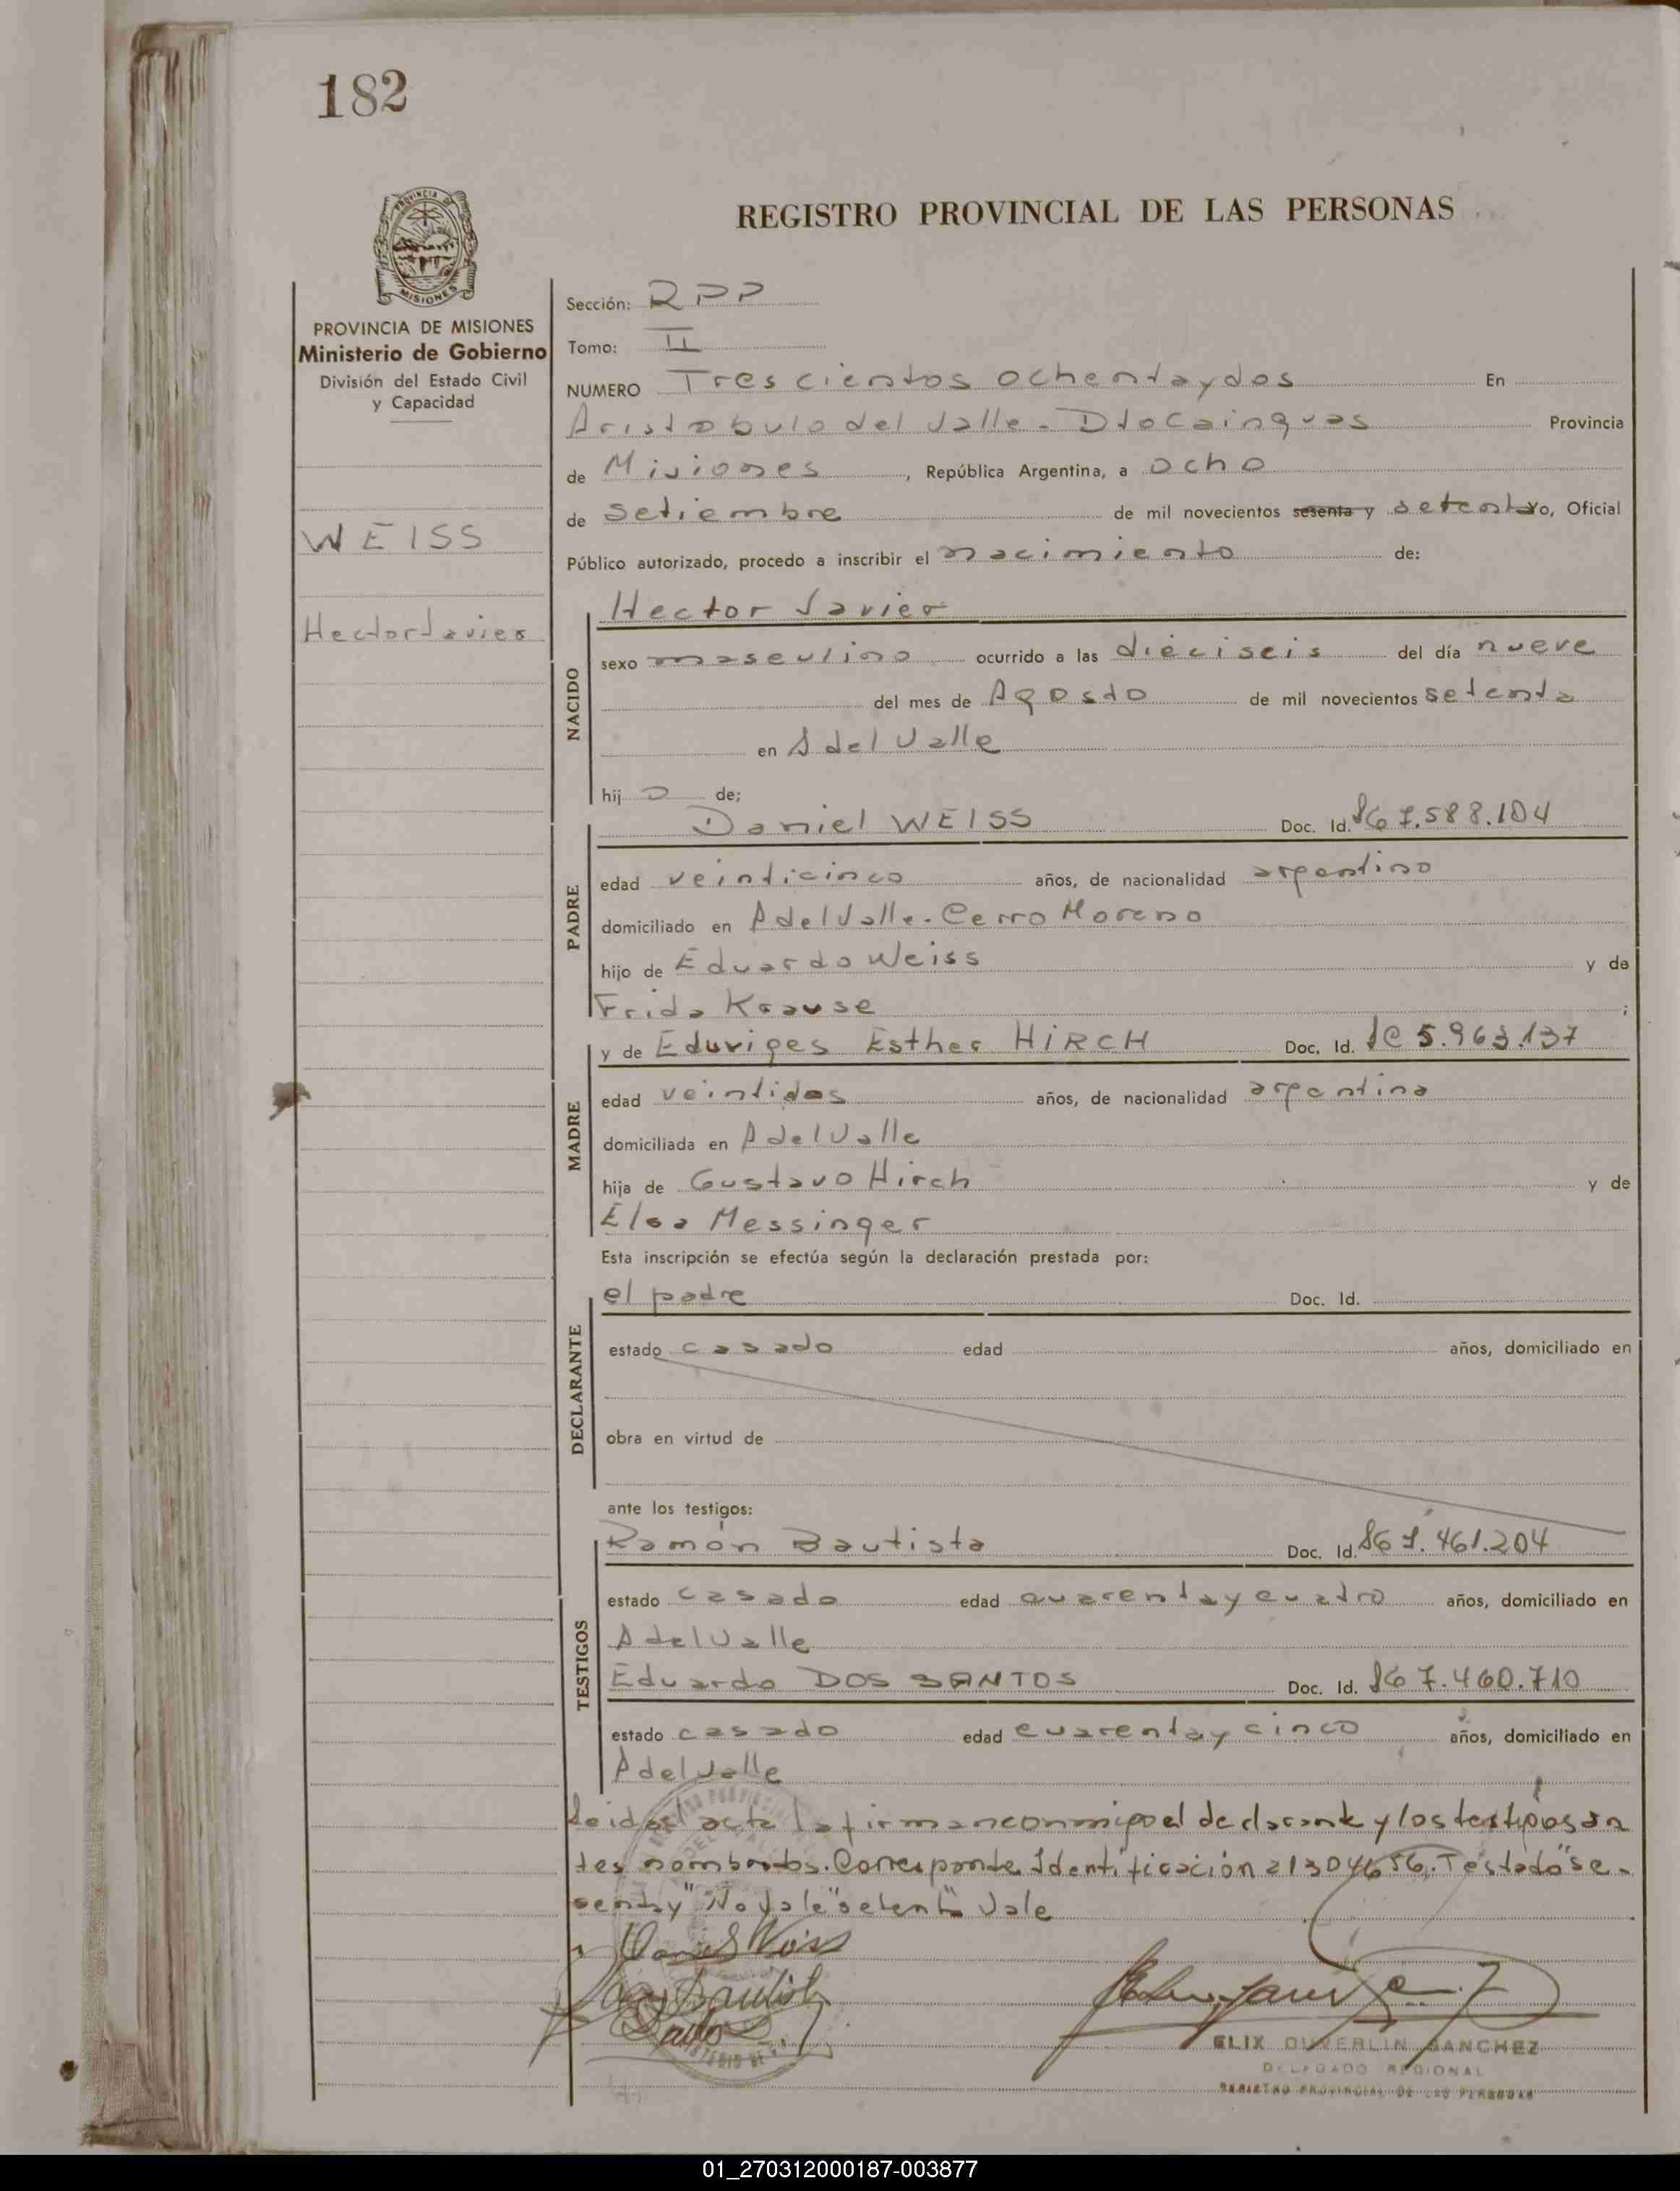 182
REGISTRO PROVINCIAL DE LAS PERSONAS
PROVINCIA DE
MISIONES
PROVINCIA DE MISIONES
Ministerio de Gobierno
División del Estado Civil
y Capacidad
WEISS
Hector Javier
Sección: RPP
Tomo: II
NUMERO Trescientos ochenta y dos En
Aristobulo del Valle - Dto Cainguas Provincia
de Misiones, República Argentina, a ocho
de setiembre de mil novecientos sesenta y setenta yo, Oficial
Público autorizado, procedo a inscribir el nacimiento de:
NACIDO
Hector Javier
sexo masculino ocurrido a las dieciseis del día nueve
del mes de Agosto de mil novecientos setenta
en A del Valle
hijo de;
PADRE
Daniel WEISS Doc. Id. 7.588.104
edad veinticinco años, de nacionalidad argentino
domiciliado en A del Valle - Cerro Moreno
hijo de Eduardo Weiss y de
Frida Krause ;
MADRE
y de Eduviges Esther HIRCH Doc. Id. 5.963.137
edad veintidos años, de nacionalidad argentina
domiciliada en A del Valle
hija de Gustavo Hirch y de
Elsa Messinger
Esta inscripción se efectúa según la declaración prestada por:
DECLARANTE
el padre Doc. Id.
estado casado edad años, domiciliado en
obra en virtud de
ante los testigos:
TESTIGOS
Ramón Bautista Doc. Id. 461.204
estado casado edad cuarenta y cuatro años, domiciliado en
A del Valle
Eduardo DOS SANTOS Doc. Id. 7.460.710
estado casado edad cuarenta y cinco años, domiciliado en
A del Valle
Leida el acta la firman conmigo el declarante y los testigos an
tes nombrados. Corresponde Identificación 21304656. Testado "se-
senta y" No Vale "setenta" Vale
Daniel Weiss
ELIX DUVERLIN SANCHEZ
DELEGADO REGIONAL
REGISTRO PROVINCIAL DE LAS PERSONAS
01_270312000187-003877